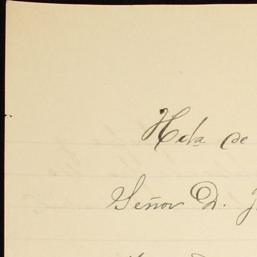 Hda de
Señor D. J